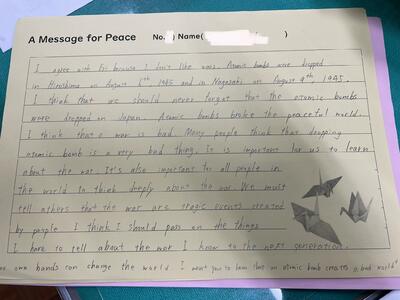 A Message for Peace No. Name( )
I agree with Eri because I don't like wars. Atomic bombs were dropped
in Hiroshima on August 6th, 1945 and in Nagasaki on August 9th 1945.
I think that we should never forget that the atomic bombs
were dropped on Japan. Atomic bombs broke the peaceful world.
I think that a war is bad. Many people think that dropping
atomic bomb is a very bad thing. It is important for us to learn
about the war. It's also important for all people in
the world to think deeply about the war. We must
tell others that the war are tragic events created
by people I think I should pass on the things
I have to tell about the war I know to the next generation.
own hands can change the world. I want you to know that an atomic bomb creates a bad world